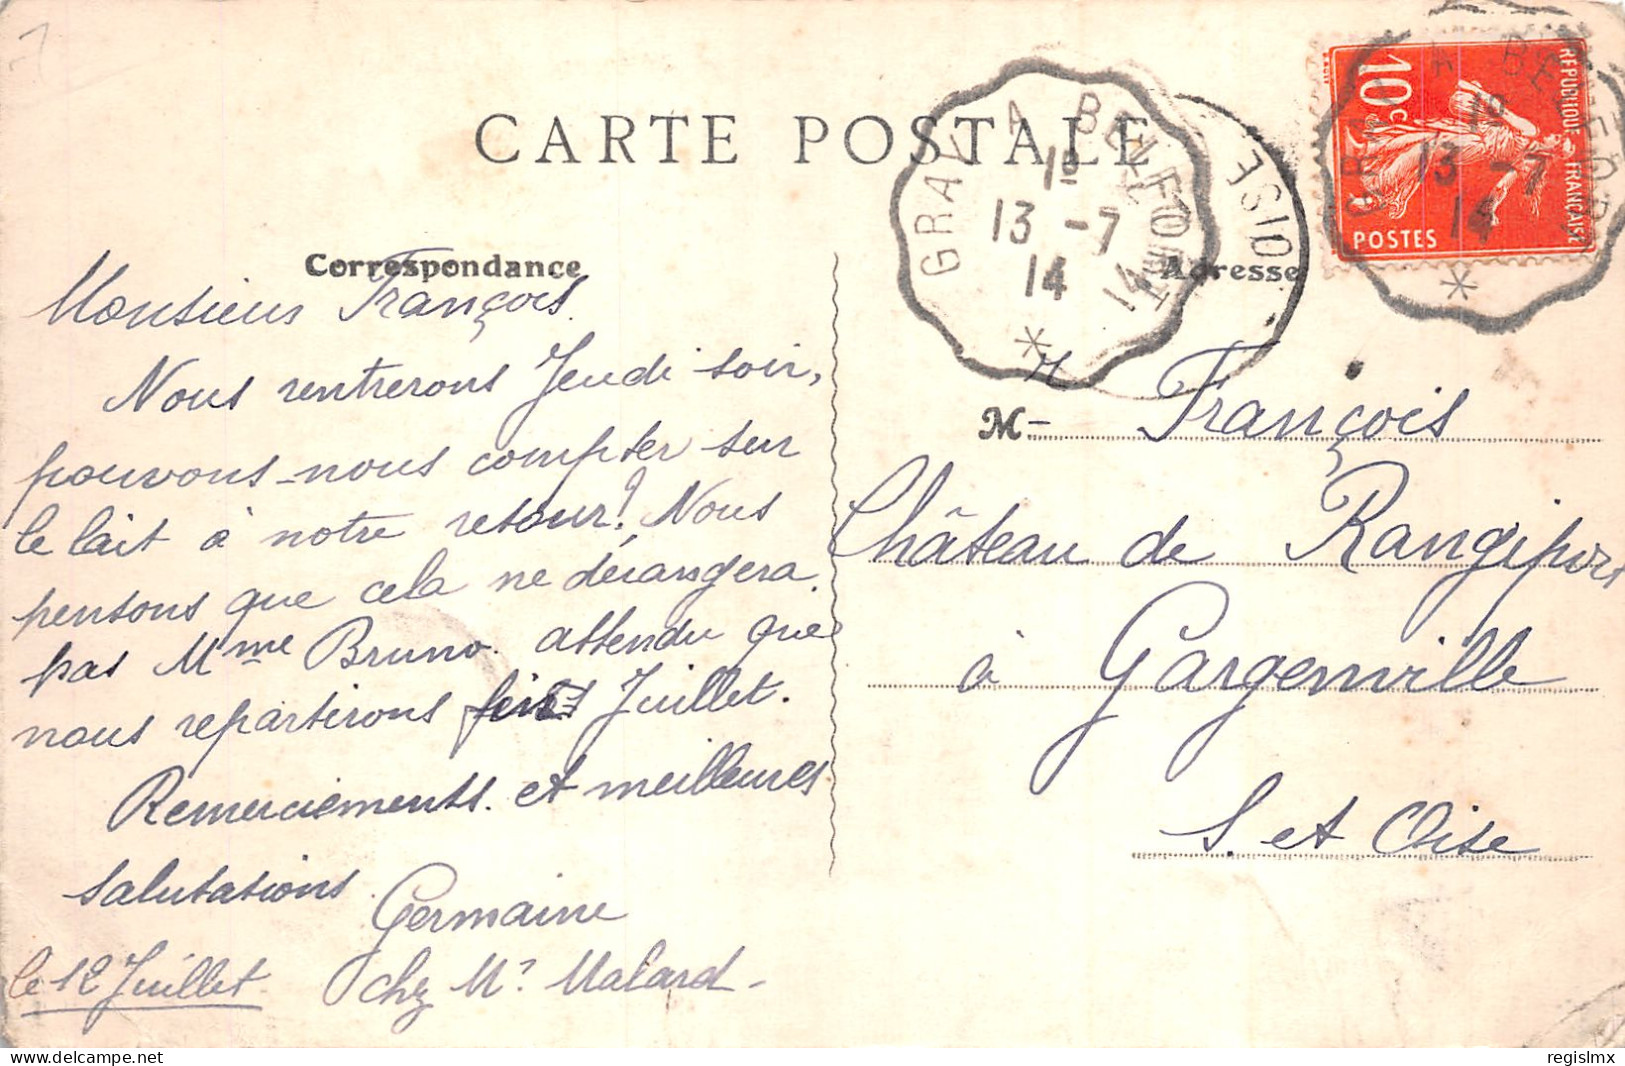 CARTE POSTALE
Correspondance
Adresse
Monsieur François.
Nous rentrerons Jeudi soir,
pouvons-nous compter sur
le lait à notre retour? Nous
pensons que cela ne dérangera
pas Mme Bruno. attendu que
nous repartirons Juillet.
Remerciements. et meilleures
salutations.
Germaine
le 12 Juillet
chez Mr Malard-
M- r François
Château de Rangiport
à Gargenville
S. et Oise
GRAY A BELFORT
1º
13 -7
14
*
OISE
14
10c
REPUBLIQUE FRANÇAISE
POSTES
GRAY A BELFORT
1º
13 -7
14
*
regislmx